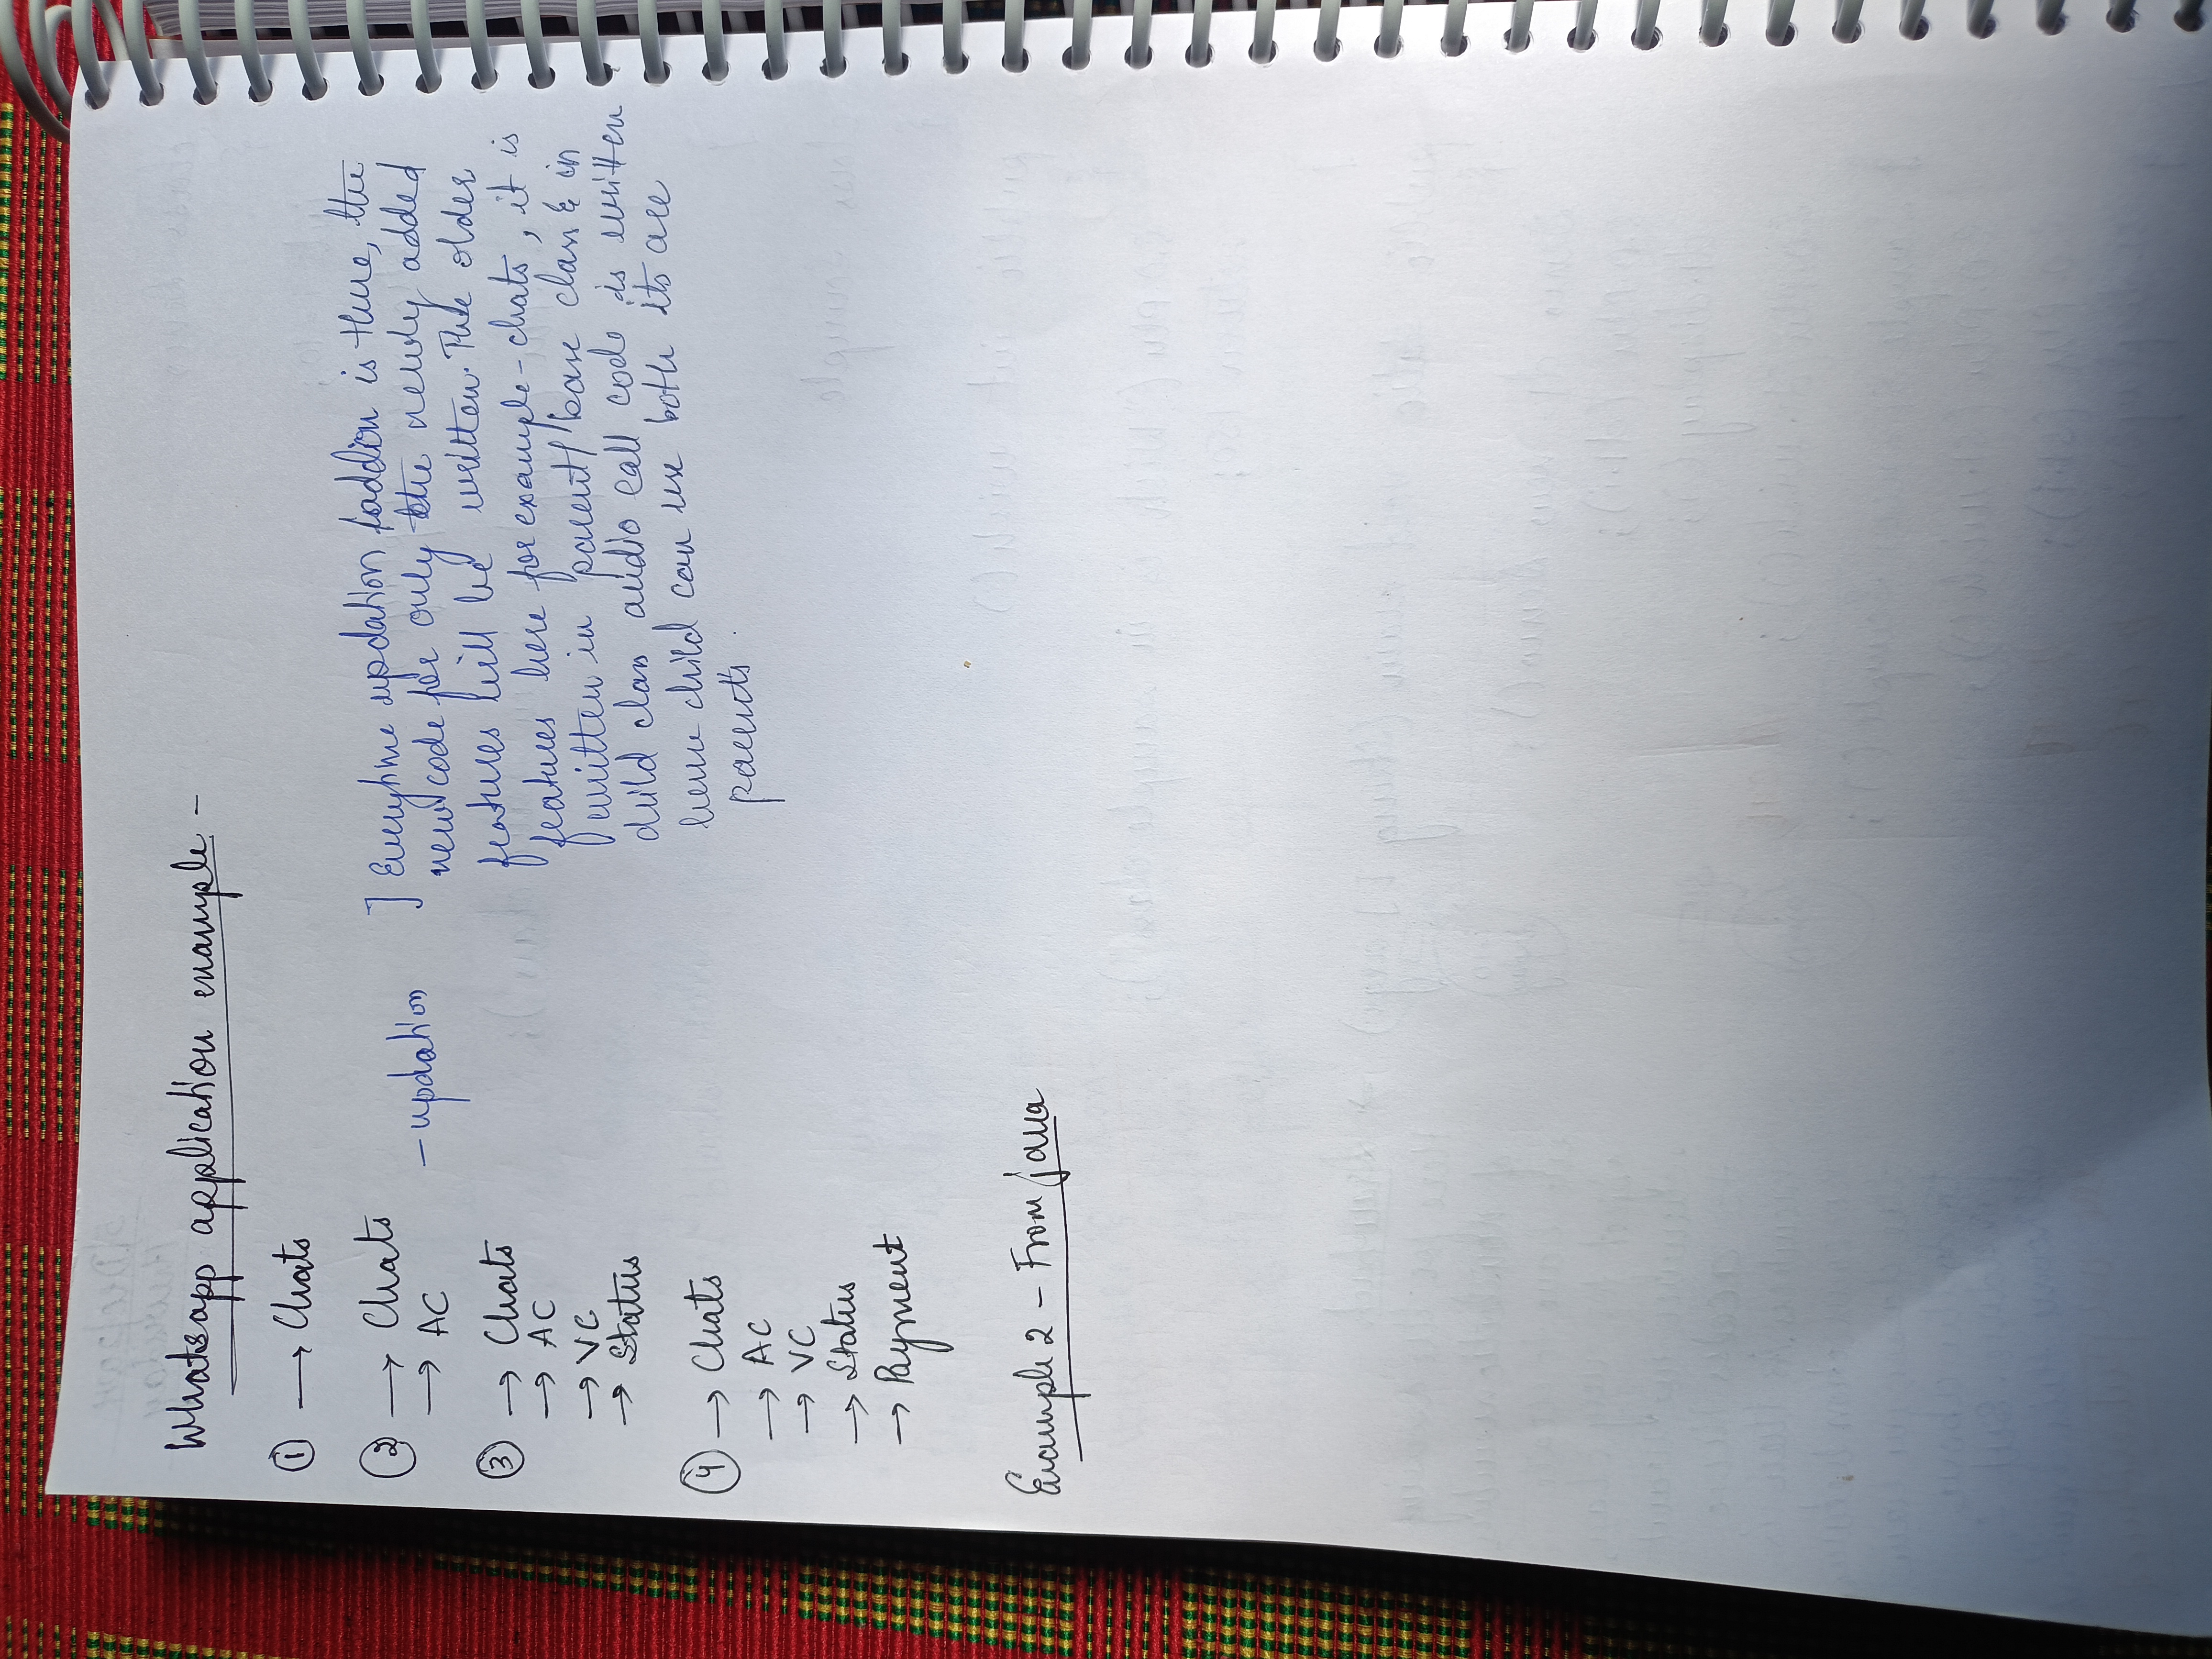 Whatsapp application example -
① → Chats
② → Chats
→ AC
- updation
③ → Chats
→ AC
→ VC
→ Status
④ → Chats
→ AC
→ VC
→ Status
→ Payment
] Everytime updation / addion is there, the
new code for only the newly added
features will be written. The older
features here for example - chats, it is
written in parent/base class & in
child class audio call code is written
hence child can use both its are
parents.
Example 2 - From java